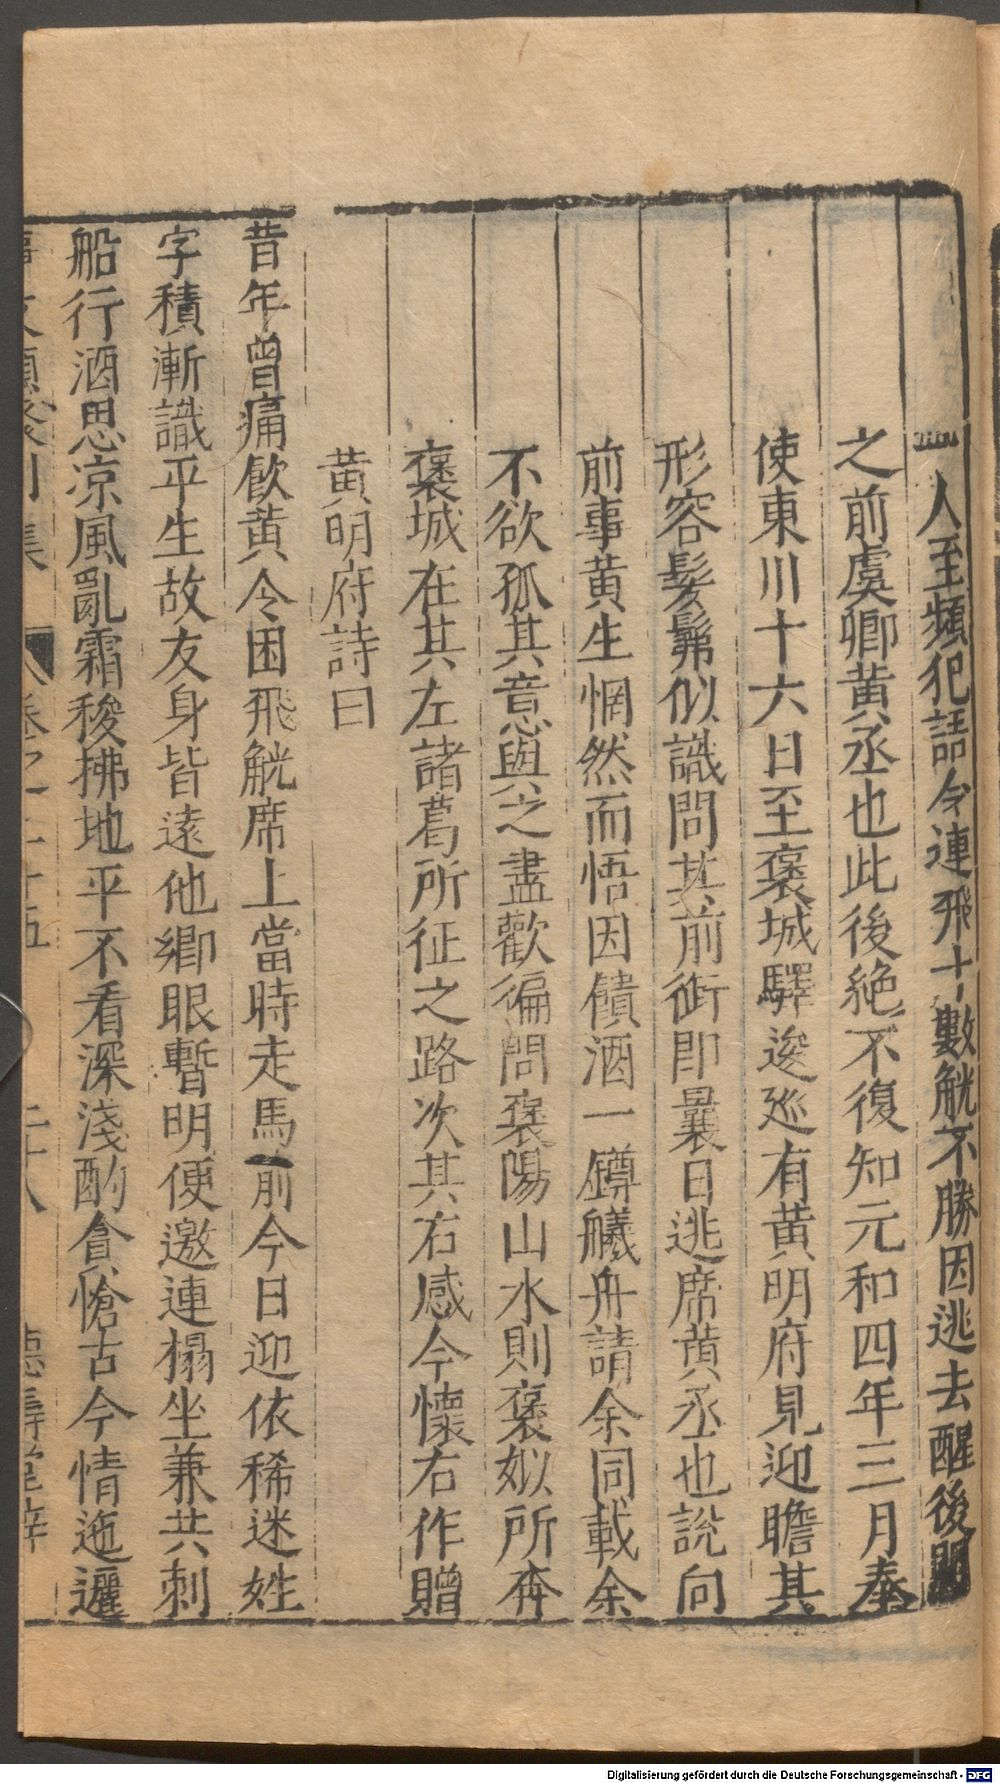 一人至頻犯語令連飛十數觥不勝因逃去醒後問
之前虞卿黄丞也此後絶不復知元和四年三月奉
使東川十六日至褒城驛逡廵有黄明府見迎瞻其
形容髣髴似識問其前銜即曩日逃席黄丞也說向
前事黄生惘然而悟因饋酒一鐏艤舟請余同載余
不欲孤其意與之盡歡徧問褒陽山水則褒姒所奔
褒城在其左諸葛所征之路次其右感今懷古作贈
黄明府詩曰
昔年曾痛飲黄令困飛觥席上當時走馬前今日迎依稀迷姓
字積漸識平生故友身皆遠他鄉眼暫明便邀連榻坐兼共刺
船行酒思凉風亂霜稜拂地平不看深淺酌貪愴古今情迤邐
事文類聚別集 卷之二十五 二十八 德壽堂梓
Digitalisierung gefördert durch die Deutsche Forschungsgemeinschaft - DFG